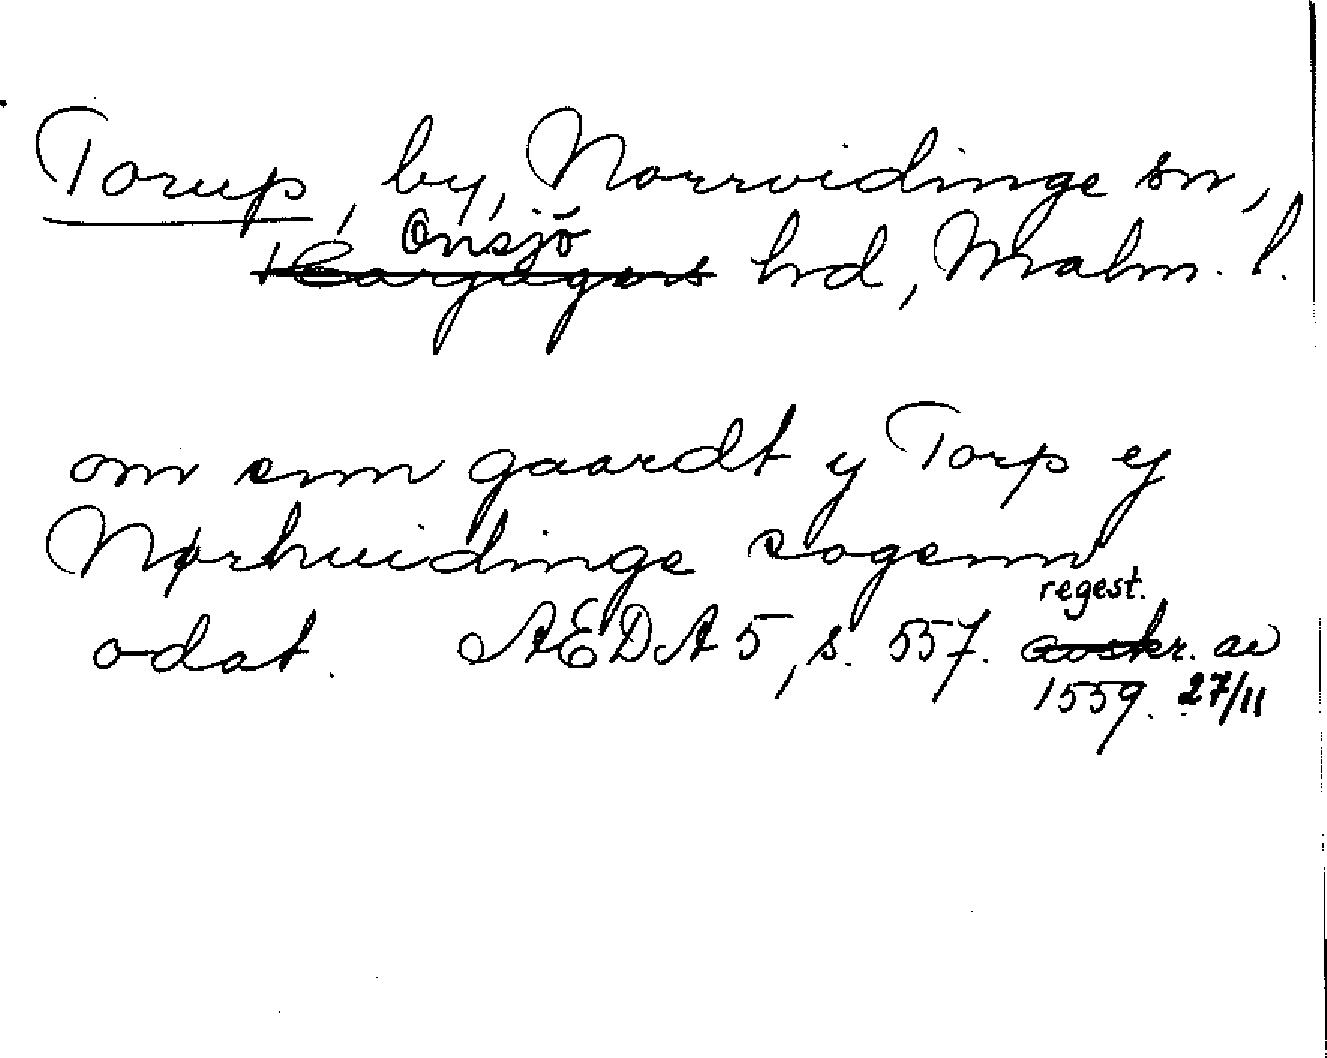 Torup, by, Norrvidinge sn,
Onsjö
Harjagers hrd, Malm. l.
om enn gaardt y Torp ej
Nørhuidinge sogenn
regest.
odat. AEDA 5, s. 557. avskr. av
1559. 27/11